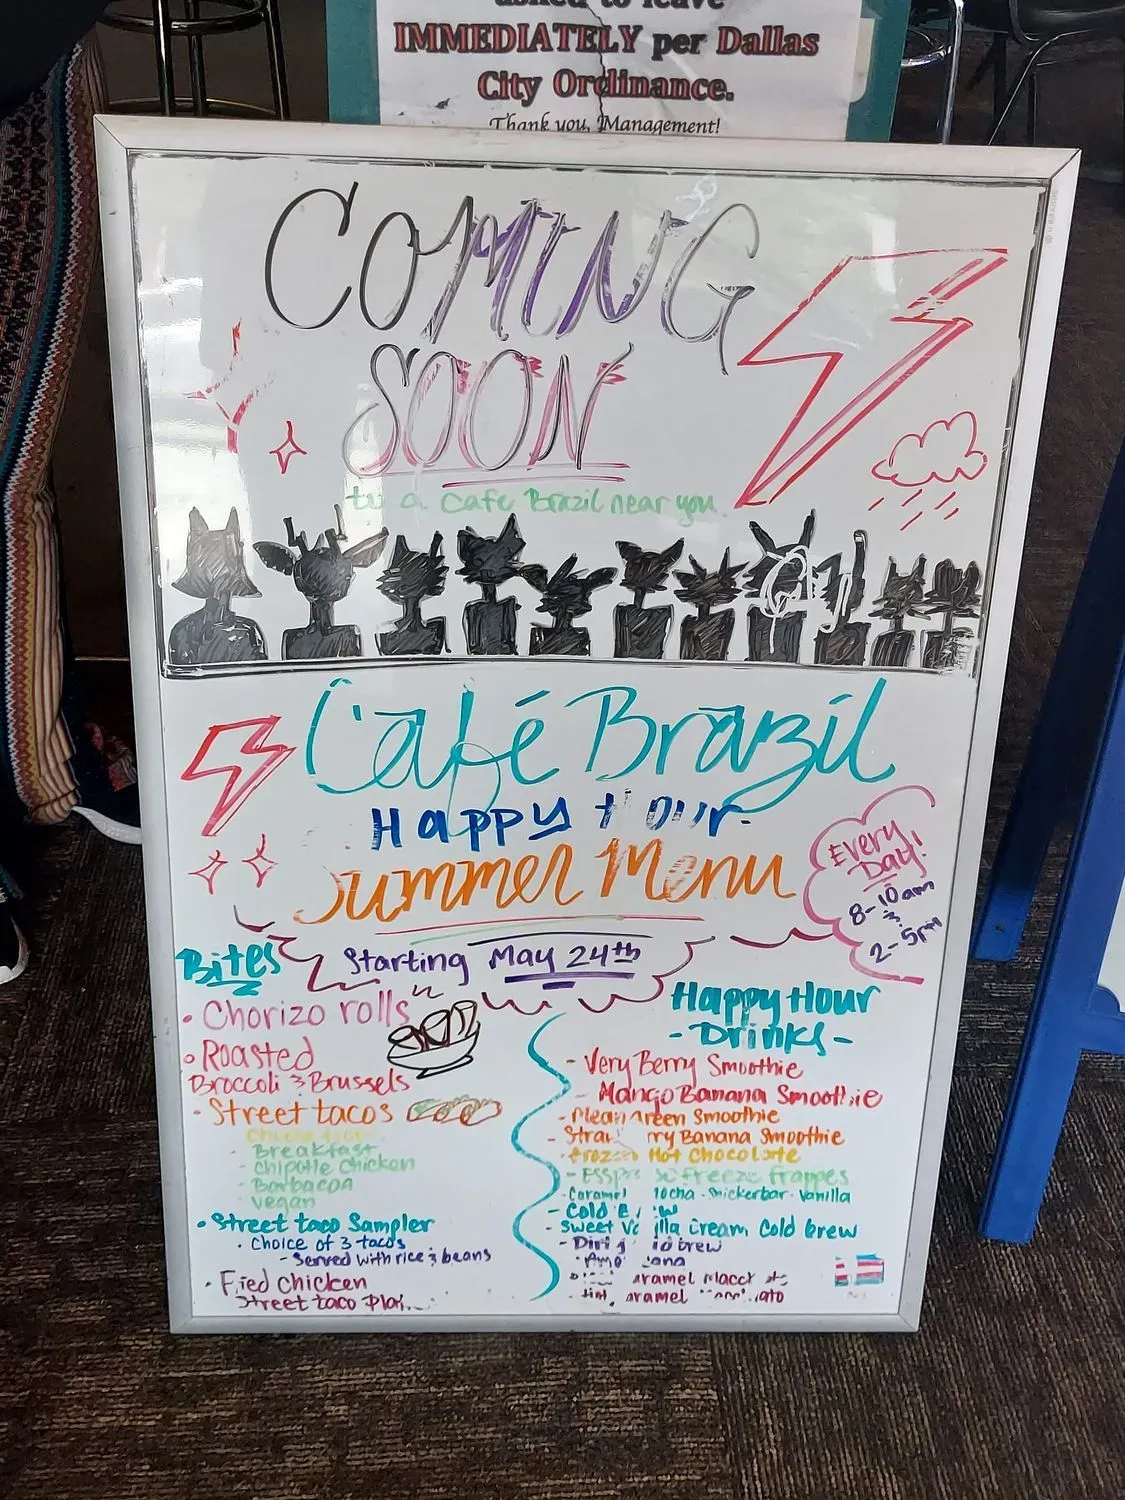 asked to leave
IMMEDIATELY per Dallas
City Ordinance.
Thank you, Management!
COMING
SOON
to a Cafe Brazil near you.
Café Brazil
Happy Hour
Summer Menu
Every
Day!
8-10am
&
2-5pm
Starting May 24th
Bites
• Chorizo rolls
• Roasted
Broccoli & Brussels
- Street tacos
- Breakfast
- Chipotle Chicken
- Barbacoa
- Vegan
• Street taco Sampler
• Choice of 3 tacos
- Served with rice & beans
• Fried Chicken
Street taco
Happy Hour
- Drinks -
- Very Berry Smoothie
- Mango Banana Smoothie
- Mean Green Smoothie
- Strawberry Banana Smoothie
- Frozen Hot Chocolate
- Freeze Frappes
- Caramel Mocha - Snickerbar - Vanilla
- Cold Brew
- Sweet Vanilla Cream Cold Brew
- Dirty
Caramel
Caramel